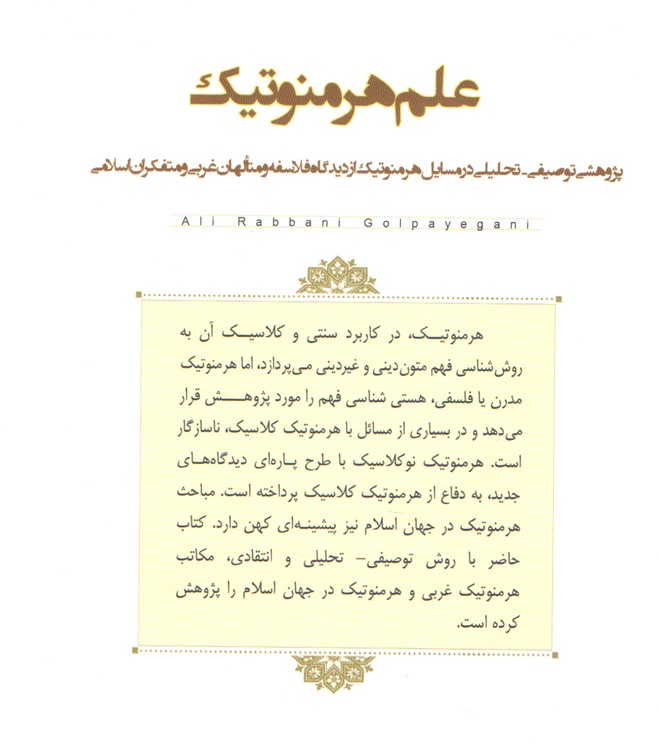 علم هرمنوتیک
پژوهشی توصیفی - تحلیلی در مسایل هرمنوتیک از دیدگاه فلاسفه و متألهان غربی و متفکران اسلامی
Ali Rabbani Golpayegani
هرمنوتیـک، در کاربرد سنتی و کلاسیـک آن به
روش‌شناسی فهم متون‌دینی و غیردینی می‌پردازد، اما هرمنوتیک
مدرن یا فلسفی، هستی شناسی فهم را مورد پژوهـش قرار
می‌دهد و در بسیاری از مسائل با هرمنوتیک کلاسیک، ناسازگار
است. هرمنوتیک نوکلاسیک با طرح پـاره‌ای دیدگاه‌هـای
جدید، به دفاع از هرمنوتیک کلاسیک پرداخته است. مباحث
هرمنوتیک در جهان اسلام نیز پیشینـه‌ای کهن دارد. کتاب
حاضر با روش توصیفی– تحلیلی و انتقادی، مکاتب
هرمنوتیک غربی و هرمنوتیک در جهان اسلام را پژوهش
کرده است.